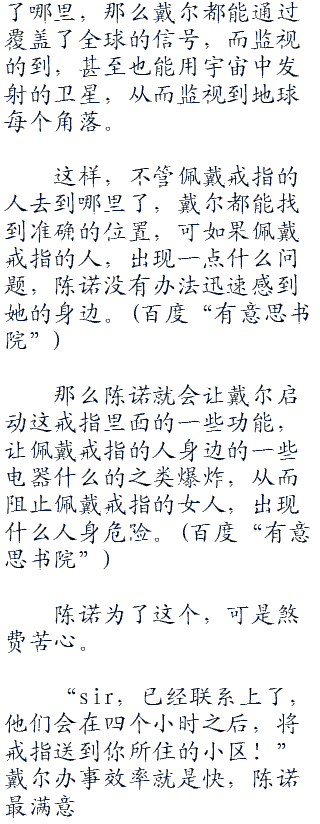 了哪里，那么戴尔都能通过
覆盖了全球的信号，而监视
的到，甚至也能用宇宙中发
射的卫星，从而监视到地球
每个角落。
这样，不管佩戴戒指的
人去到哪里了，戴尔都能找
到准确的位置，可如果佩戴
戒指的人，出现一点什么问
题，陈诺没有办法迅速感到
她的身边。(百度“有意思书
院”)
那么陈诺就会让戴尔启
动这戒指里面的一些功能，
让佩戴戒指的人身边的一些
电器什么的之类爆炸，从而
阻止佩戴戒指的女人，出现
什么人身危险。(百度“有意
思书院”)
陈诺为了这个，可是煞
费苦心。
“sir，已经联系上了，
他们会在四个小时之后，将
戒指送到你所住的小区！”
戴尔办事效率就是快，陈诺
最满意